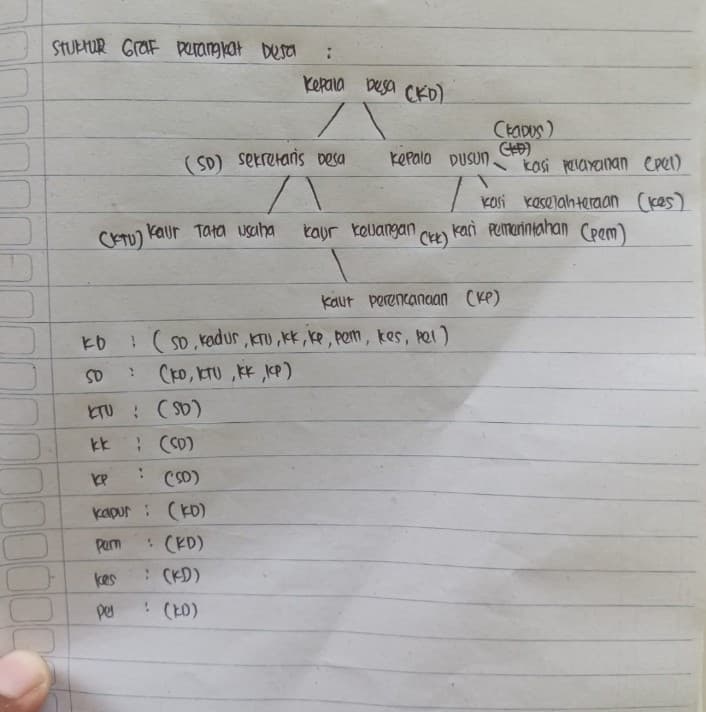 STUKTUR GRAF Perangkat Desa :
Kepala Desa (KD)
(Kadus)
(SD) Sekretaris Desa Kepala Dusun (KD) Kasi Pelayanan (Pel)
Kasi Kesejahteraan (Kes)
(KTU) Kaur Tata usaha Kaur Keuangan (KK) Kasi Pemerintahan (Pem)
Kaur perencanaan (KP)
KD : (SD, Kadus, KTU, KK, KP, Pem, Kes, Pel)
SD : (KD, KTU, KK, KP)
KTU : (SD)
KK : (SD)
KP : (SD)
Kadus : (KD)
Pem : (KD)
Kes : (KD)
Pel : (KD)